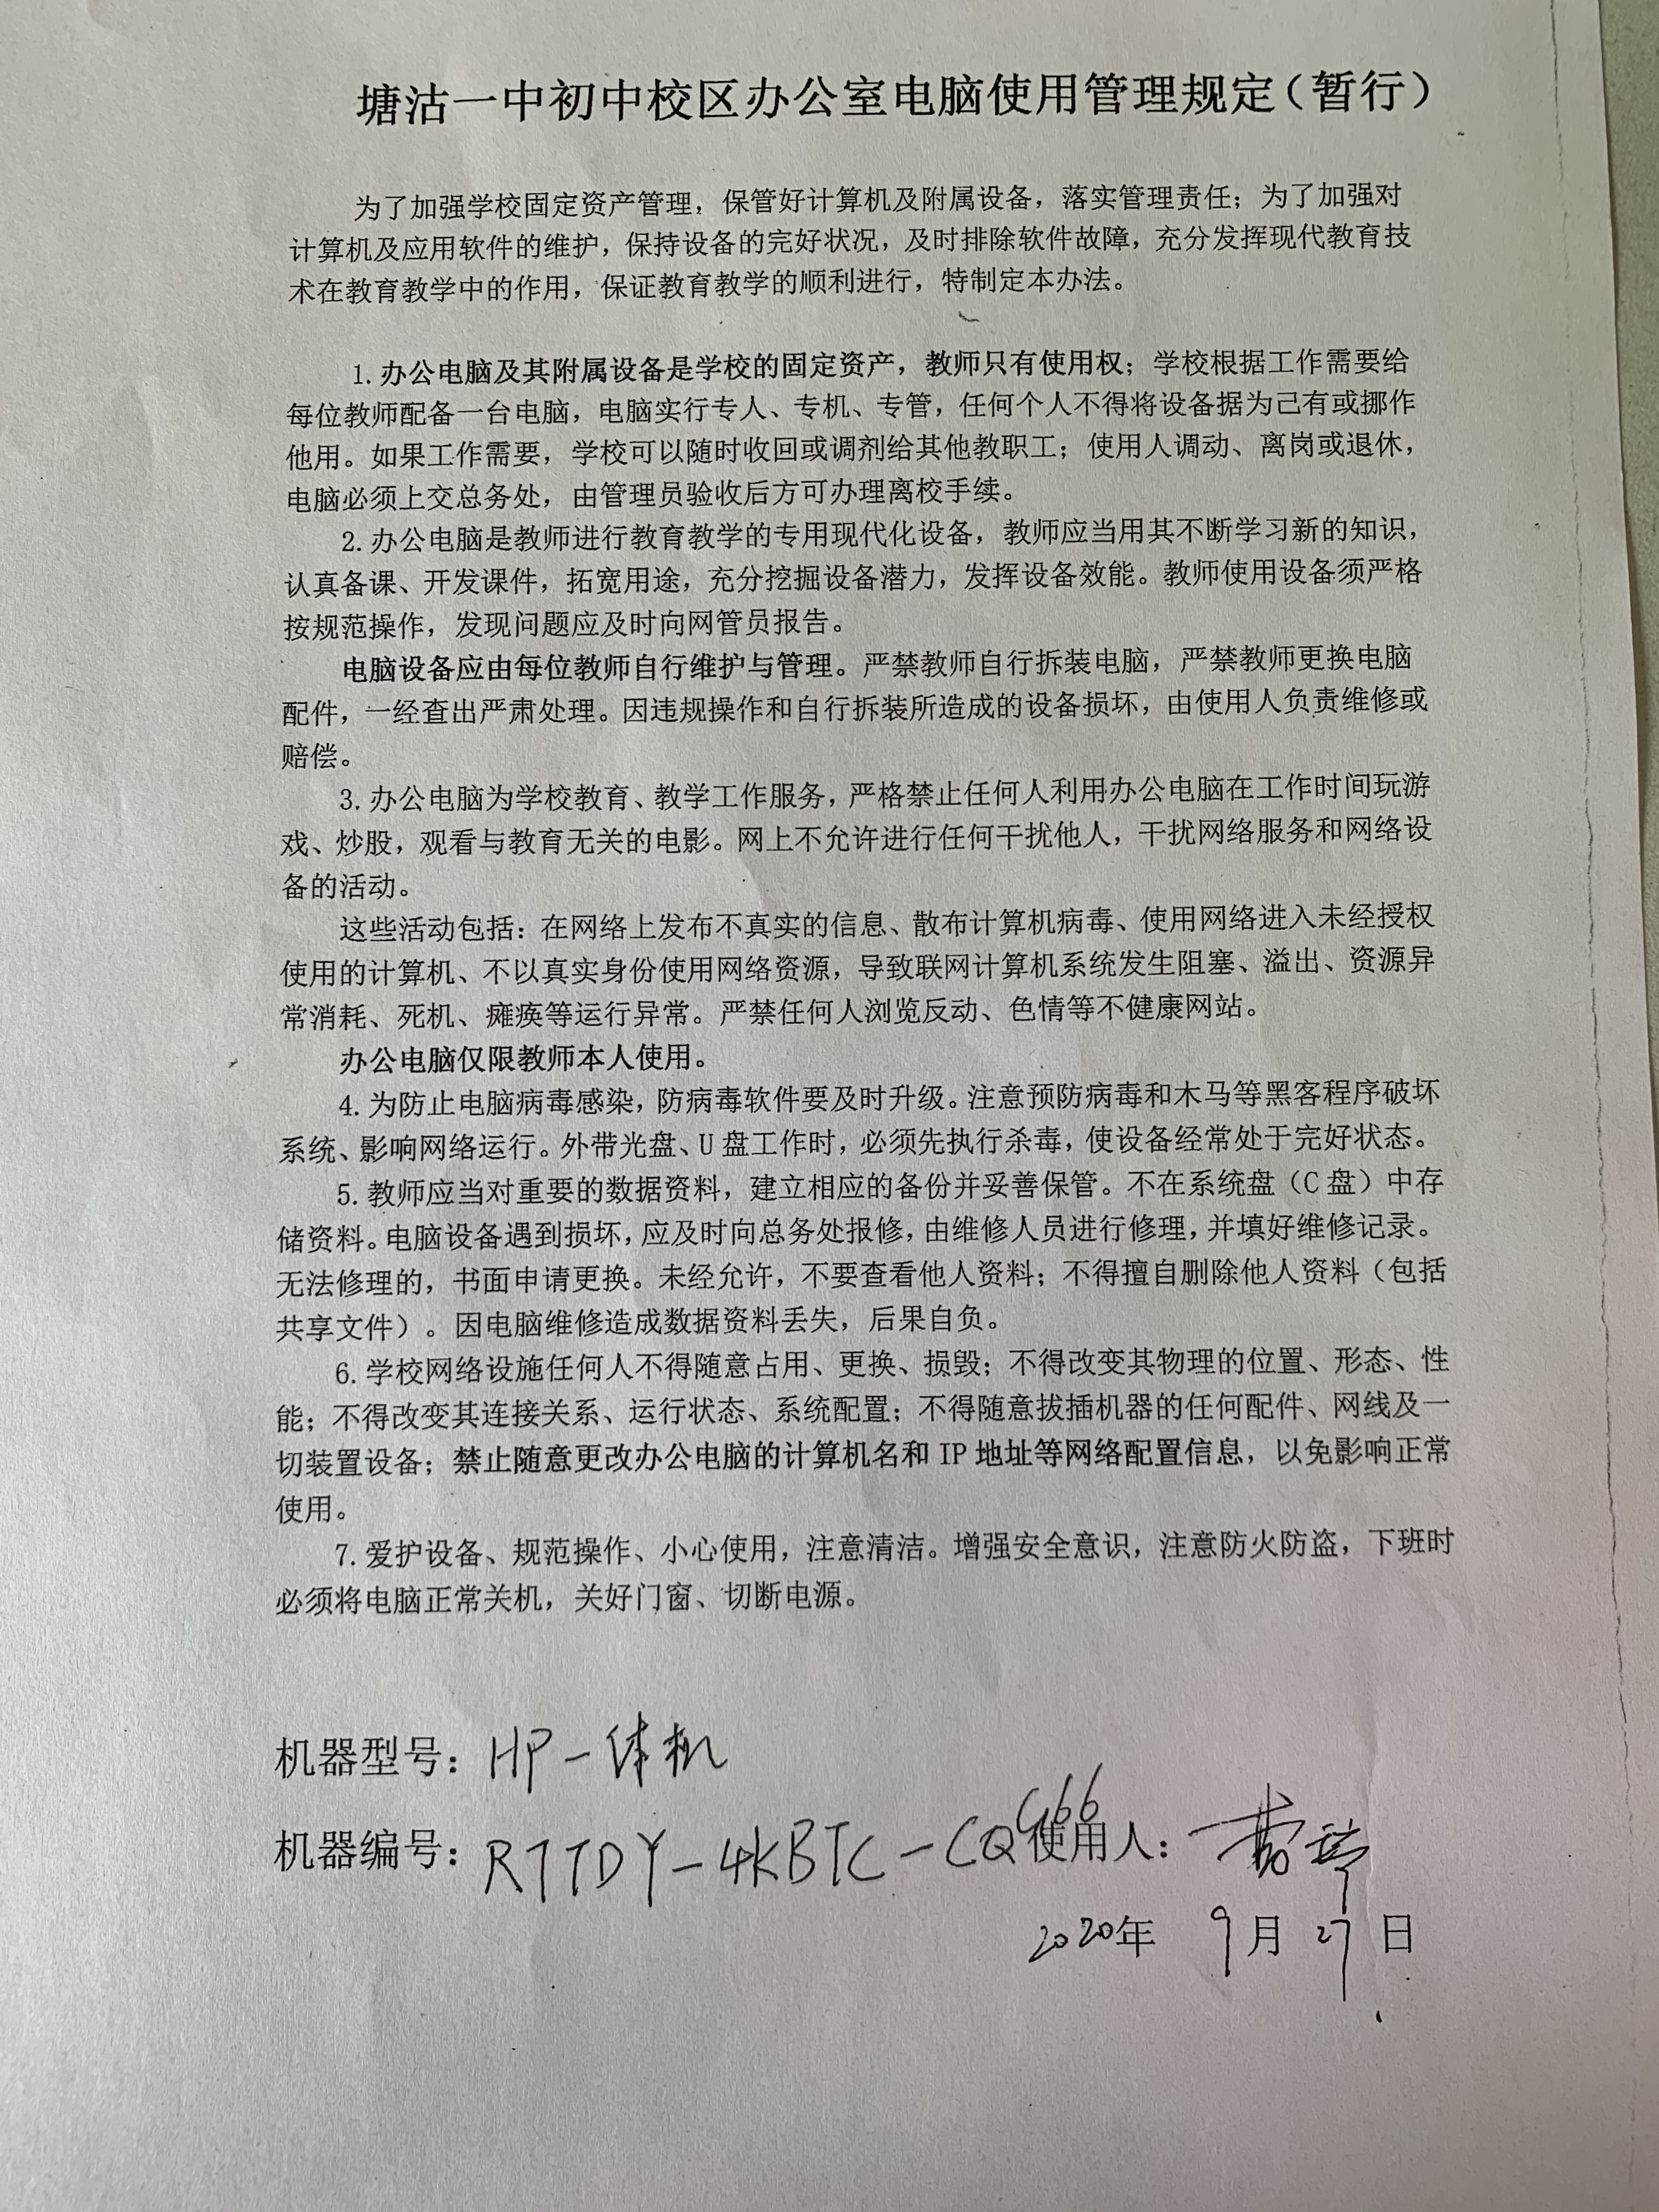 塘沽一中初中校区办公室电脑使用管理规定（暂行）
为了加强学校固定资产管理，保管好计算机及附属设备，落实管理责任；为了加强对
计算机及应用软件的维护，保持设备的完好状况，及时排除软件故障，充分发挥现代教育技
术在教育教学中的作用，保证教育教学的顺利进行，特制定本办法。
1.办公电脑及其附属设备是学校的固定资产，教师只有使用权；学校根据工作需要给
每位教师配备一台电脑，电脑实行专人、专机、专管，任何个人不得将设备据为己有或挪作
他用。如果工作需要，学校可以随时收回或调剂给其他教职工；使用人调动、离岗或退休，
电脑必须上交总务处，由管理员验收后方可办理离校手续。
2.办公电脑是教师进行教育教学的专用现代化设备，教师应当用其不断学习新的知识，
认真备课、开发课件，拓宽用途，充分挖掘设备潜力，发挥设备效能。教师使用设备须严格
按规范操作，发现问题应及时向网管员报告。
电脑设备应由每位教师自行维护与管理。严禁教师自行拆装电脑，严禁教师更换电脑
配件，一经查出严肃处理。因违规操作和自行拆装所造成的设备损坏，由使用人负责维修或
赔偿。
3.办公电脑为学校教育、教学工作服务，严格禁止任何人利用办公电脑在工作时间玩游
戏、炒股，观看与教育无关的电影。网上不允许进行任何干扰他人，干扰网络服务和网络设
备的活动。
这些活动包括：在网络上发布不真实的信息、散布计算机病毒、使用网络进入未经授权
使用的计算机、不以真实身份使用网络资源，导致联网计算机系统发生阻塞、溢出、资源异
常消耗、死机、瘫痪等运行异常。严禁任何人浏览反动、色情等不健康网站。
办公电脑仅限教师本人使用。
4.为防止电脑病毒感染，防病毒软件要及时升级。注意预防病毒和木马等黑客程序破坏
系统、影响网络运行。外带光盘、U盘工作时，必须先执行杀毒，使设备经常处于完好状态。
5.教师应当对重要的数据资料，建立相应的备份并妥善保管。不在系统盘（C盘）中存
储资料。电脑设备遇到损坏，应及时向总务处报修，由维修人员进行修理，并填好维修记录。
无法修理的，书面申请更换。未经允许，不要查看他人资料；不得擅自删除他人资料（包括
共享文件）。因电脑维修造成数据资料丢失，后果自负。
6.学校网络设施任何人不得随意占用、更换、损毁；不得改变其物理的位置、形态、性
能；不得改变其连接关系、运行状态、系统配置；不得随意拔插机器的任何配件、网线及一
切装置设备；禁止随意更改办公电脑的计算机名和IP地址等网络配置信息，以免影响正常
使用。
7.爱护设备、规范操作、小心使用，注意清洁。增强安全意识，注意防火防盗，下班时
必须将电脑正常关机，关好门窗、切断电源。
机器型号：HP一体机
机器编号：R7TDY-4KBTC-CQ 使用人：
2020年 9月 27 日